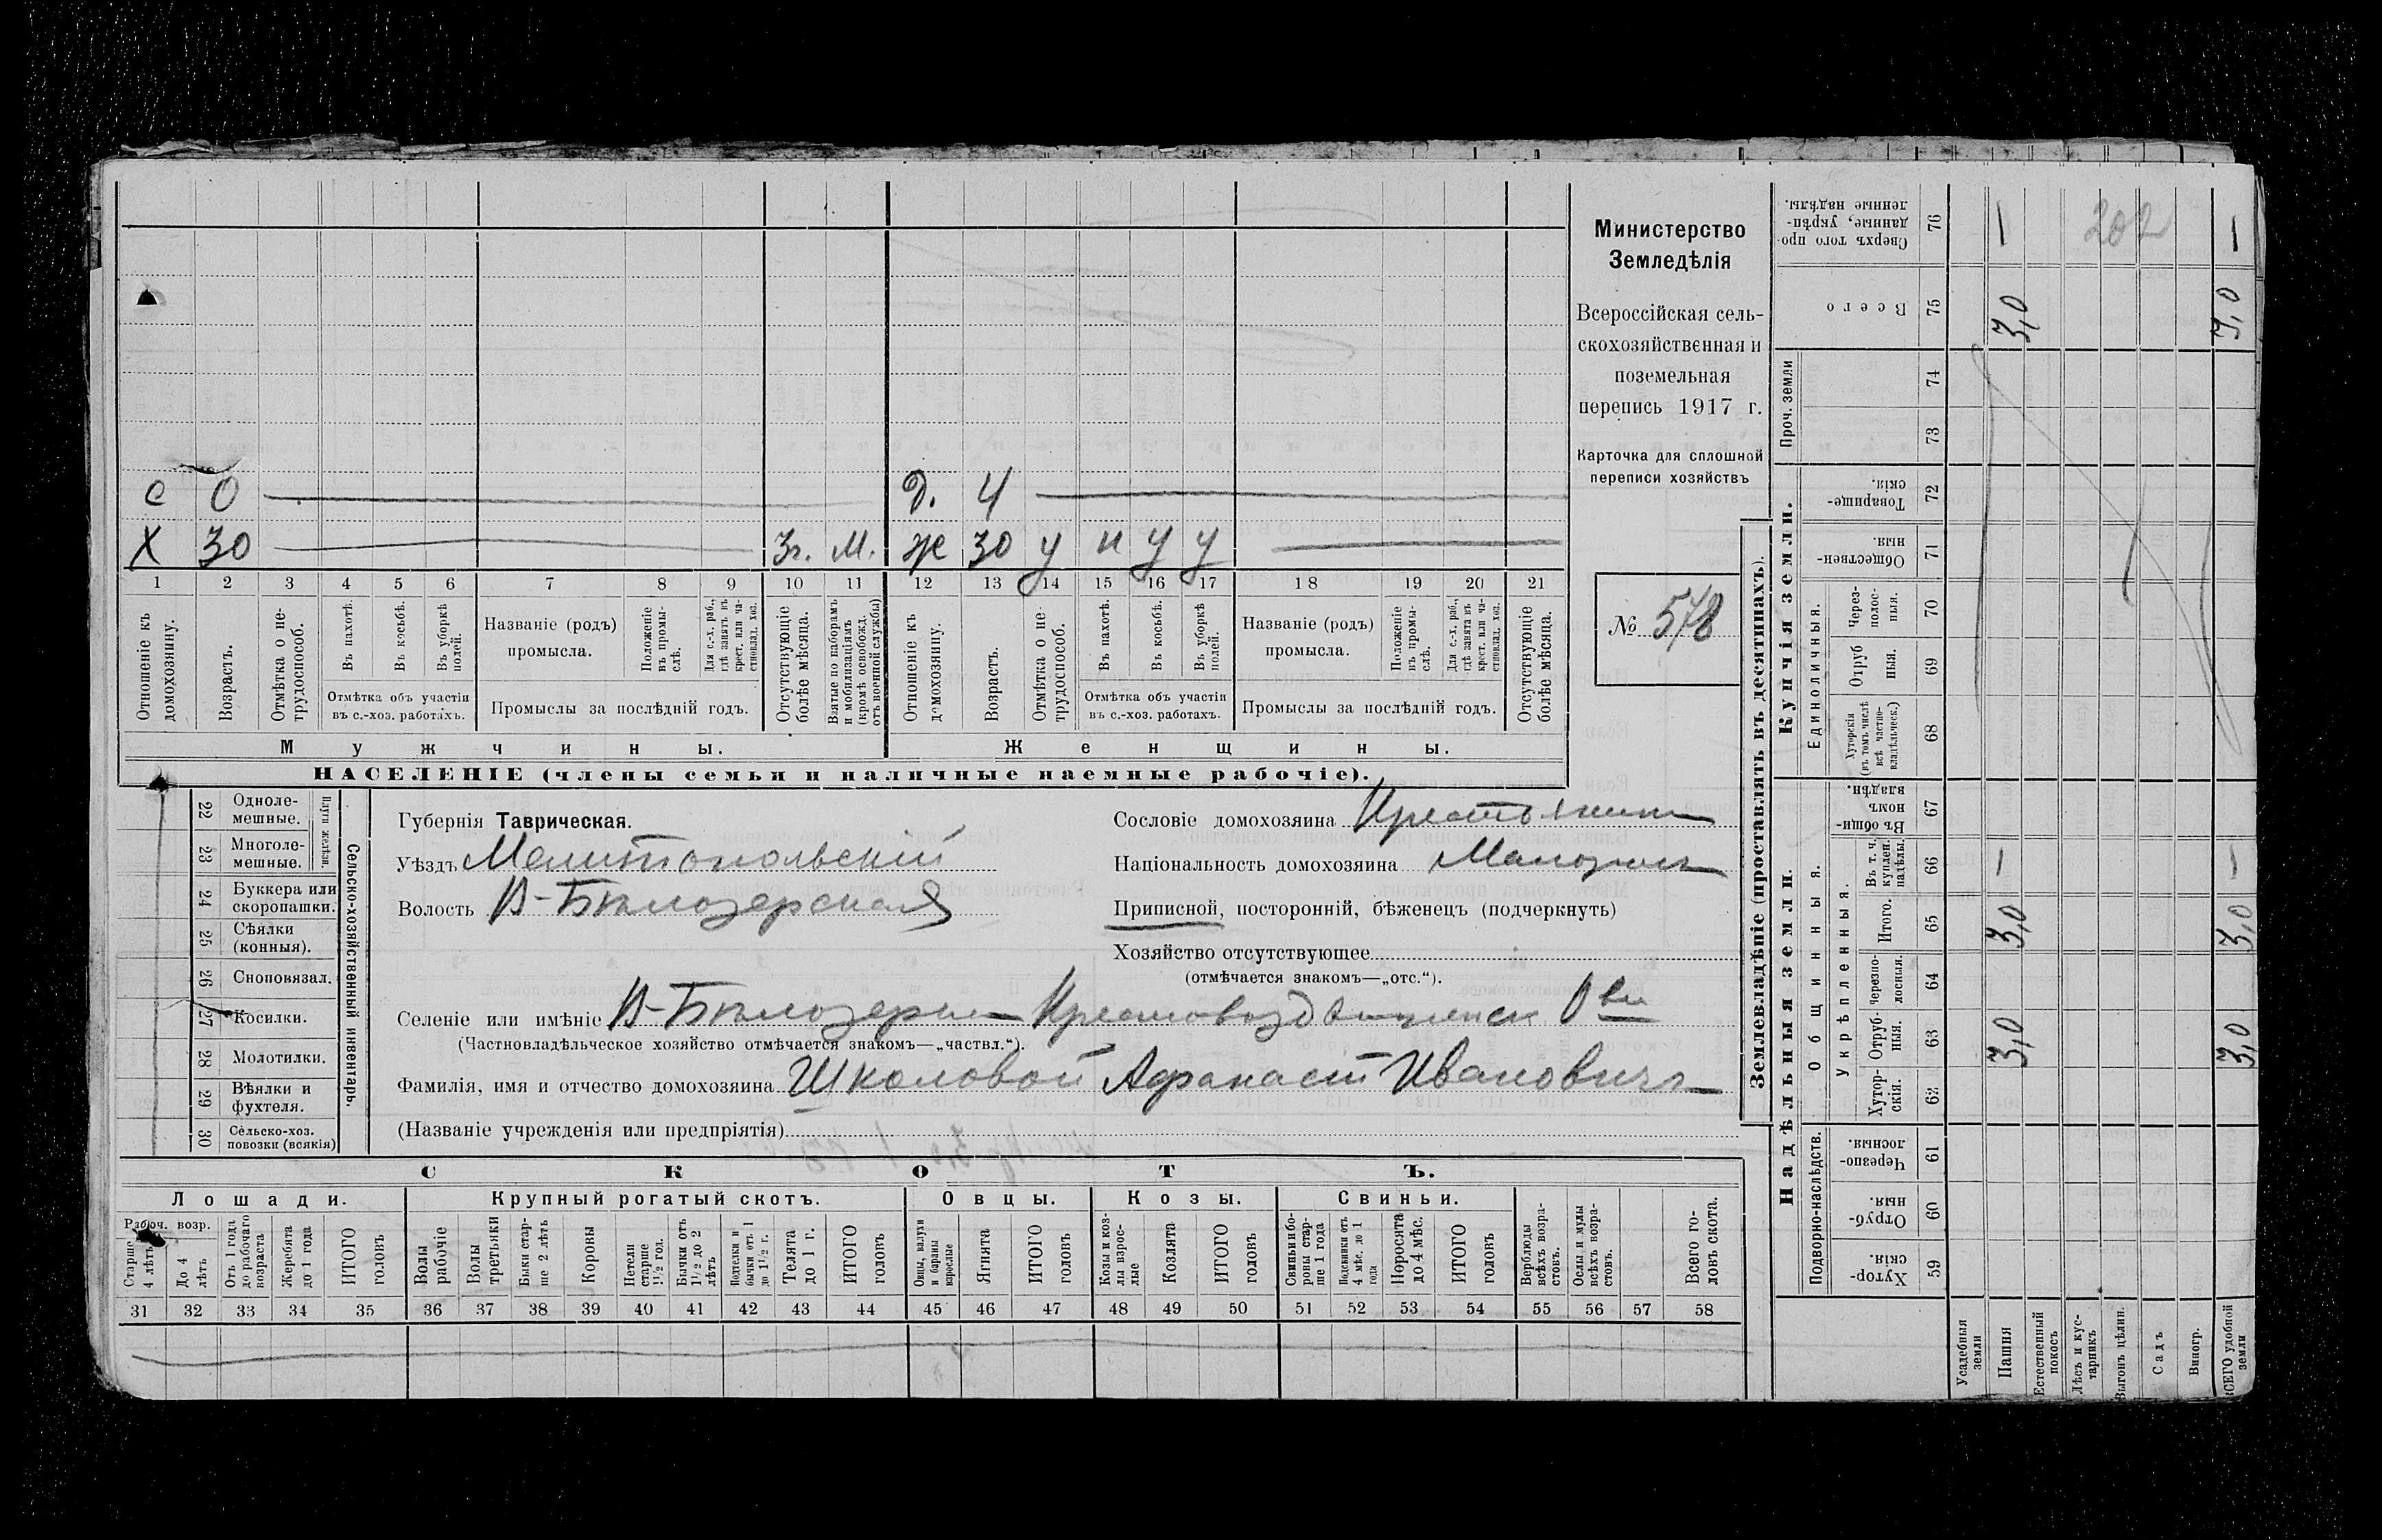 с 0 д. 4
Х 30 3г. м. ж 30 у н у у
1 2 3 4 5 6 7 8 9 10 11 12 13 14 15 16 17 18 19 20 21
Отношеніе къ домохозяину.
Возрастъ.
Отмѣтка о нетрудоспособ.
Въ пахотѣ.
Въ косьбѣ.
Въ уборкѣ полей.
Отмѣтка объ участіи
въ с.-хоз. работахъ.
Названіе (родъ)
промысла.
Положеніе въ промыслѣ.
Для с.-х. раб., гдѣ занятъ въ крест. или частновлад. хоз.
Промыслы за послѣдній годъ.
Отсутствующіе болѣе мѣсяца.
Взятые по наборамъ и мобилизаціямъ (кромѣ освобожд. отъ военной службы)
Отношеніе къ домохозяину.
Возрастъ.
Отмѣтка о нетрудоспособ.
Въ пахотѣ.
Въ косьбѣ.
Въ уборкѣ полей.
Отмѣтка объ участіи
въ с.-хоз. работахъ.
Названіе (родъ)
промысла.
Положеніе въ промыслѣ.
Для с.-х. раб., гдѣ занята въ крест. или частновлад. хоз.
Промыслы за послѣдній годъ.
Отсутствующіе болѣе мѣсяца.
Мужчины. Женщины.
НАСЕЛЕНІЕ (члены семьи и наличные наемные рабочіе).
Министерство
Земледѣлія
Всероссійская сель-
скохозяйственная и
поземельная
перепись 1917 г.
Карточка для сплошной
переписи хозяйствъ
№ 578
22 Одноле-
мешные.
23 Многоле-
мешные.
24 Буккера или
скоропашки.
25 Сѣялки
(конныя).
26 Сноповязал.
27 Косилки.
28 Молотилки.
29 Вѣялки и
фухтеля.
30 Сельско-хоз.
повозки (всякія)
Сельско-хозяйственный инвентарь.
Губернія Таврическая.
Уѣздъ Мелитопольскій
Волость В-Бѣлозерская
Сословіе домохозяина Крестьянин
Національность домохозяина Малоросъ
Приписной, посторонній, бѣженецъ (подчеркнуть)
Хозяйство отсутствующее
(отмѣчается знакомъ—„отс.“).
Селеніе или имѣніе В-Бѣлозерка Крестовоздвиженск О-ва
(Частновладѣльческое хозяйство отмѣчается знакомъ—„частвл.“).
Фамилія, имя и отчество домохозяина Школовой Афанасій Ивановичъ
(Названіе учрежденія или предпріятія)
СКОТЪ.
Лошади. Крупный рогатый скотъ. Овцы. Козы. Свиньи.
Рабоч. возр.
Старше 4 лѣтъ
До 4 лѣтъ
Отъ 1 года до рабочаго возраста
Жеребята до 1 года
ИТОГО головъ
Волы рабочіе
Волы третьяки
Быки старше 2 лѣтъ
Коровы
Нетели старше 1½ год.
Бычки отъ 1½ до 2 лѣтъ
Подтелки и бычки отъ 1 до 1½ г.
Телята до 1 г.
ИТОГО головъ
Овцы, валухи и бараны взрослые
Ягнята
ИТОГО головъ
Козы и козлы взрослые
Козлята
ИТОГО головъ
Свиньи и боровы старше 1 года
Подсвинки отъ 4 мѣс. до 1 года
Поросята до 4 мѣс.
ИТОГО головъ
Верблюды всѣхъ возрастовъ.
Ослы и мулы всѣхъ возрастовъ.
Всего головъ скота.
31 32 33 34 35 36 37 38 39 40 41 42 43 44 45 46 47 48 49 50 51 52 53 54 55 56 57 58
Землевладѣніе (проставлять въ десятинахъ).
Купчія земли.
Надѣльныя земли.
Сверхъ того проданные, укрѣпленные надѣлы. 76 — 202 —
Всего 75 3,0 3,0
Проч. земли 74
73
Товарищескія. 72
Общественныя. 71
Единоличныя.
Черезполосныя. 70
Отрубныя. 69
Хуторскія (въ томъ числѣ всѣ частновладѣльческ.) 68
Общинныя.
Въ общинномъ владѣн. 67
Укрѣпленныя.
Въ т. ч. куплен. надѣлы. 66 — —
Итого. 65 3,0 3,0
Черезполосныя. 64
Отрубныя. 63 3,0 3,0
Хуторскія. 62
Подворно-наслѣдств.
Черезполосныя. 61
Отрубныя. 60
Хуторскія. 59
Усадебныя земли
Пашня
Естественный покосъ
Лѣсъ и кустарникъ
Выгонъ цѣлин.
Садъ
Виногр.
ВСЕГО удобной земли